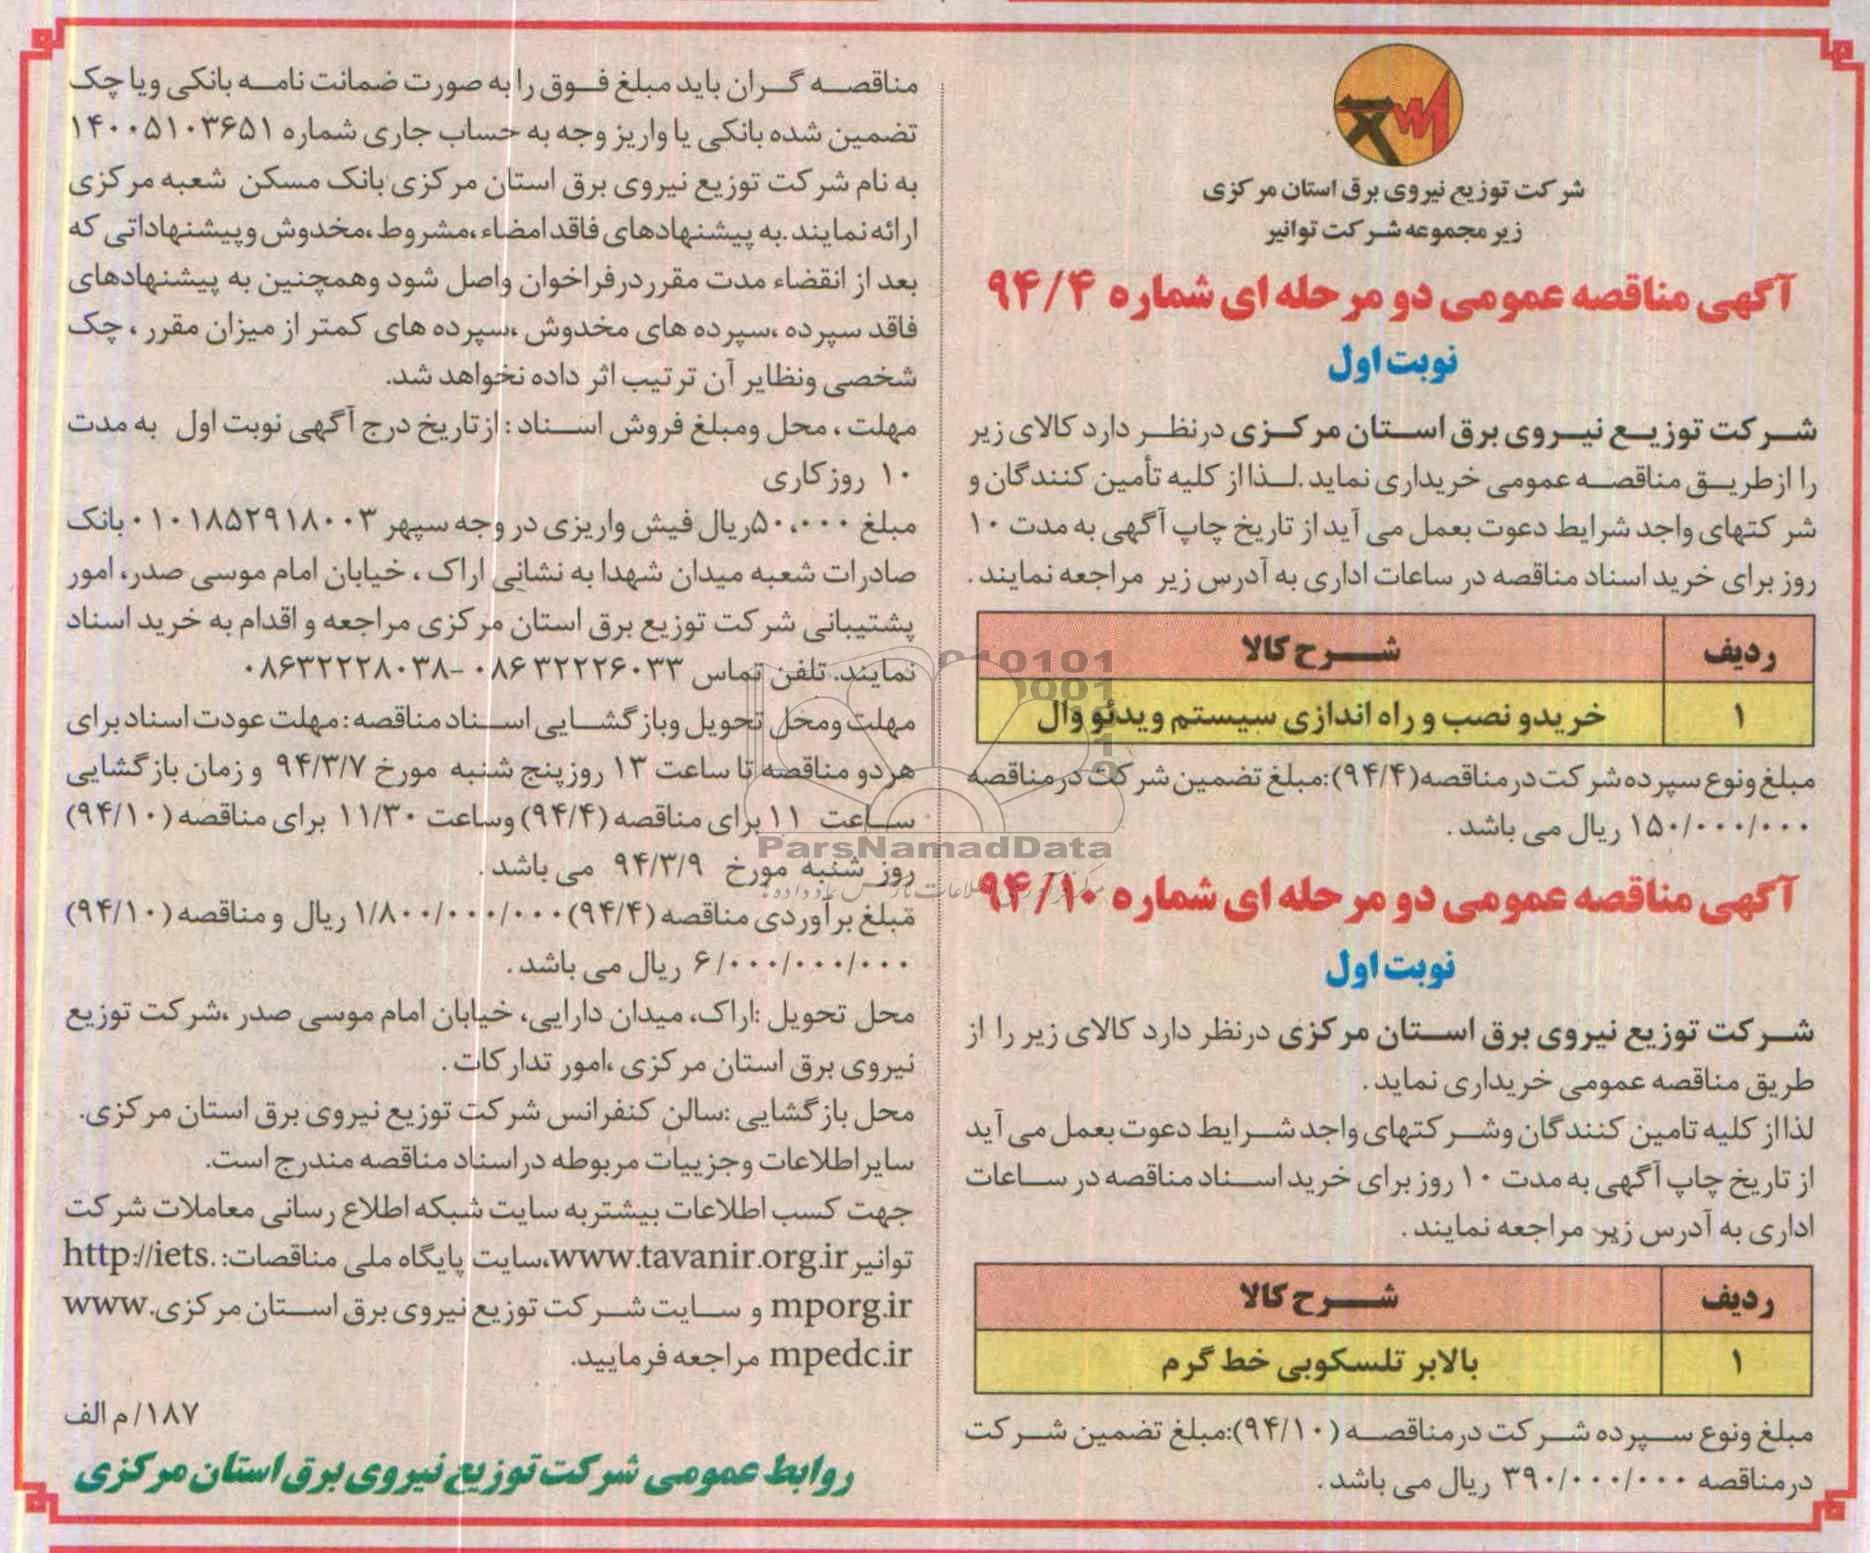 شرکت توزیع نیروی برق استان مرکزی
زیر مجموعه شرکت توانیر
آگهی مناقصه عمومی دو مرحله ای شماره ۹۴/۴
نوبت اول
شرکت توزیع نیروی برق استان مرکزی درنظر دارد کالای زیر
را ازطریق مناقصه عمومی خریداری نماید.لذا از کلیه تأمین کنندگان و
شرکتهای واجد شرایط دعوت بعمل می آید از تاریخ چاپ آگهی به مدت ۱۰
روز برای خرید اسناد مناقصه در ساعات اداری به آدرس زیر مراجعه نمایند.
ردیف شرح کالا
۱ خریدو نصب و راه اندازی سیستم ویدئو وال
مبلغ ونوع سپرده شرکت درمناقصه(۹۴/۴):مبلغ تضمین شرکت درمناقصه
۱۵۰/۰۰۰/۰۰۰ ریال می باشد.
آگهی مناقصه عمومی دو مرحله ای شماره ۹۴/۱۰
نوبت اول
شرکت توزیع نیروی برق استان مرکزی درنظر دارد کالای زیر را از
طریق مناقصه عمومی خریداری نماید.
لذا از کلیه تامین کنندگان وشرکتهای واجد شرایط دعوت بعمل می آید
از تاریخ چاپ آگهی به مدت ۱۰ روز برای خرید اسناد مناقصه در ساعات
اداری به آدرس زیر مراجعه نمایند.
ردیف شرح کالا
۱ بالابر تلسکوپی خط گرم
مبلغ ونوع سپرده شرکت درمناقصه (۹۴/۱۰):مبلغ تضمین شرکت
درمناقصه ۳۹۰/۰۰۰/۰۰۰ ریال می باشد.
مناقصه گران باید مبلغ فوق را به صورت ضمانت نامه بانکی ویا چک
تضمین شده بانکی یا واریز وجه به حساب جاری شماره ۱۴۰۰۵۱۰۳۶۵۱
به نام شرکت توزیع نیروی برق استان مرکزی بانک مسکن شعبه مرکزی
ارائه نمایند.به پیشنهادهای فاقد امضاء،مشروط،مخدوش وپیشنهاداتی که
بعد از انقضاء مدت مقرردرفراخوان واصل شود وهمچنین به پیشنهادهای
فاقد سپرده،سپرده های مخدوش،سپرده های کمتر از میزان مقرر، چک
شخصی ونظایر آن ترتیب اثر داده نخواهد شد.
مهلت، محل ومبلغ فروش اسناد: ازتاریخ درج آگهی نوبت اول به مدت
۱۰ روزکاری
مبلغ ۵۰،۰۰۰ریال فیش واریزی در وجه سپهر ۰۱۰۱۸۵۲۹۱۸۰۰۳ بانک
صادرات شعبه میدان شهدا به نشانی اراک، خیابان امام موسی صدر، امور
پشتیبانی شرکت توزیع برق استان مرکزی مراجعه و اقدام به خرید اسناد
نمایند. تلفن تماس ۰۸۶۳۲۲۲۶۰۳۳-۰۸۶۳۲۲۲۸۰۳۸
مهلت ومحل تحویل وبازگشایی اسناد مناقصه: مهلت عودت اسناد برای
هردو مناقصه تا ساعت ۱۳ روزپنج شنبه مورخ ۹۴/۳/۷ و زمان بازگشایی
ساعت ۱۱ برای مناقصه (۹۴/۴) وساعت ۱۱/۳۰ برای مناقصه (۹۴/۱۰)
روز شنبه مورخ ۹۴/۳/۹ می باشد.
مبلغ برآوردی مناقصه (۹۴/۴) ۱/۸۰۰/۰۰۰/۰۰۰ ریال و مناقصه (۹۴/۱۰)
۶/۰۰۰/۰۰۰/۰۰۰ ریال می باشد.
محل تحویل :اراک، میدان دارایی، خیابان امام موسی صدر،شرکت توزیع
نیروی برق استان مرکزی،امور تدارکات.
محل بازگشایی :سالن کنفرانس شرکت توزیع نیروی برق استان مرکزی.
سایر اطلاعات وجزییات مربوطه دراسناد مناقصه مندرج است.
جهت کسب اطلاعات بیشتربه سایت شبکه اطلاع رسانی معاملات شرکت
توانیر www.tavanir.org.ir،سایت پایگاه ملی مناقصات: http://iets.
mporg.ir و سایت شرکت توزیع نیروی برق استان مرکزی.www
mpedc.ir مراجعه فرمایید.
۱۸۷/م الف
روابط عمومی شرکت توزیع نیروی برق استان مرکزی
ParsNamadData